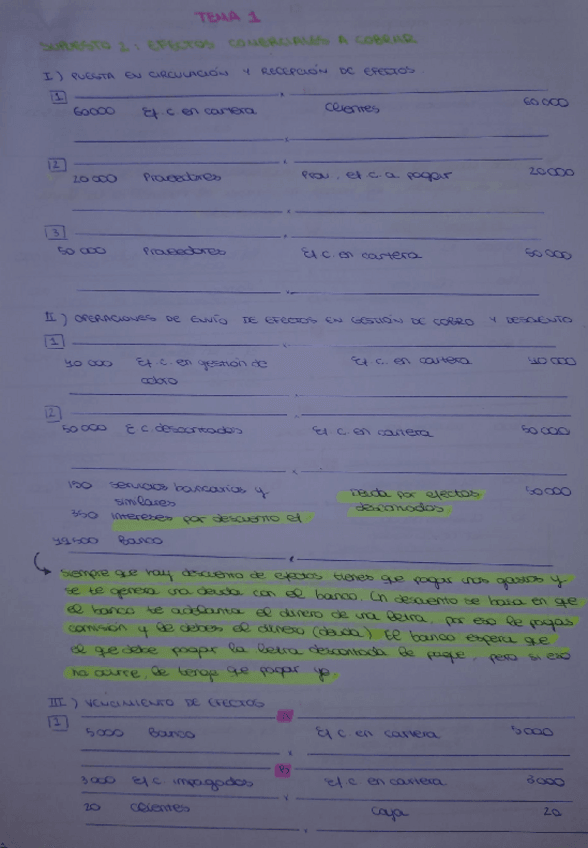 TEMA 1
SUPUESTO 2: EFECTOS COMERCIALES A COBRAR
I) PUESTA EN CIRCULACIÓN Y RECEPCIÓN DE EFECTOS
1
60000 Ef. c. en cartera Clientes 60000
2
20000 Proveedores Prov. ef. c. a pagar 20000
3
50000 Proveedores Ef c. en cartera 50000
II) OPERACIONES DE ENVÍO DE EFECTOS EN GESTIÓN DE COBRO Y DESCUENTO
1
40000 Ef. c. en gestión de Ef c. en cartera 40000
cobro
2
50000 E c. descontados Ef c. en cartera 50000
150 servicios bancarios y Deuda por efectos 50000
similares descontados
350 intereses por descuento ef
49500 Banco
Siempre que hay descuento de efectos tienes que pagar unos gastos y
se te genera una deuda con el banco. Un descuento se basa en que
el banco te adelanta el dinero de una letra, por eso le pagas
comisión y le debes el dinero (deuda). El banco espera que
el que debe pagar la letra descontada le pague, pero si eso
no ocurre, le tengo que pagar yo.
III) VENCIMIENTO DE EFECTOS
1
5000 Banco Ef c. en cartera 5000
B)
3000 Ef. c. impagados Ef c. en cartera 3000
20 Clientes Caja 20